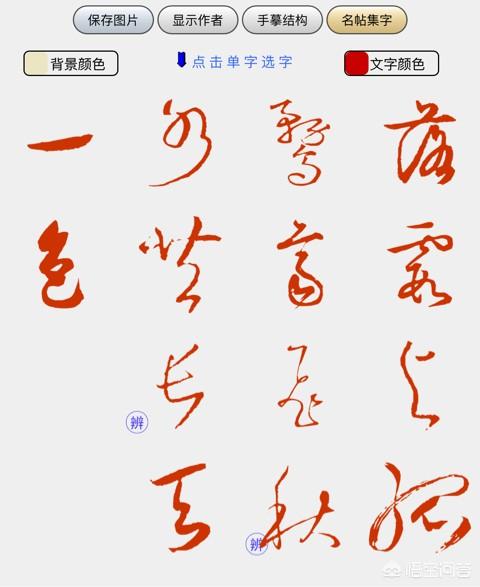 保存图片 显示作者 手摹结构 名帖集字
背景颜色 点击单字选字 文字颜色
落霞与孤
鹜齐飞秋
水共长天
一色
辨
辨
悟空问答